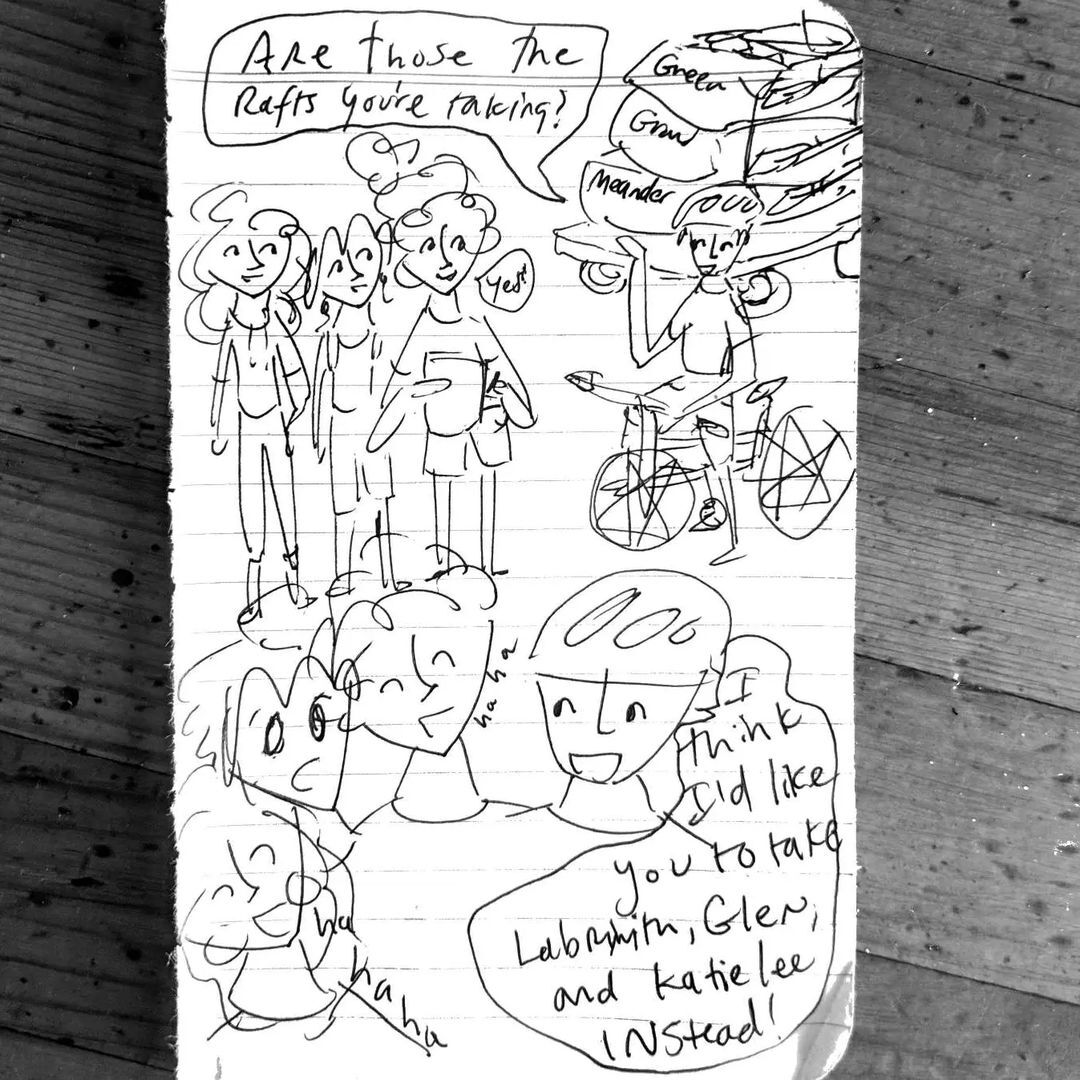 Are those the
Rafts you're taking?
Green
Meander
Yes!
ha ha
I
think
I'd like
you to take
Labrynith, Glen,
and Katie lee
INStead!
ha
ha
ha